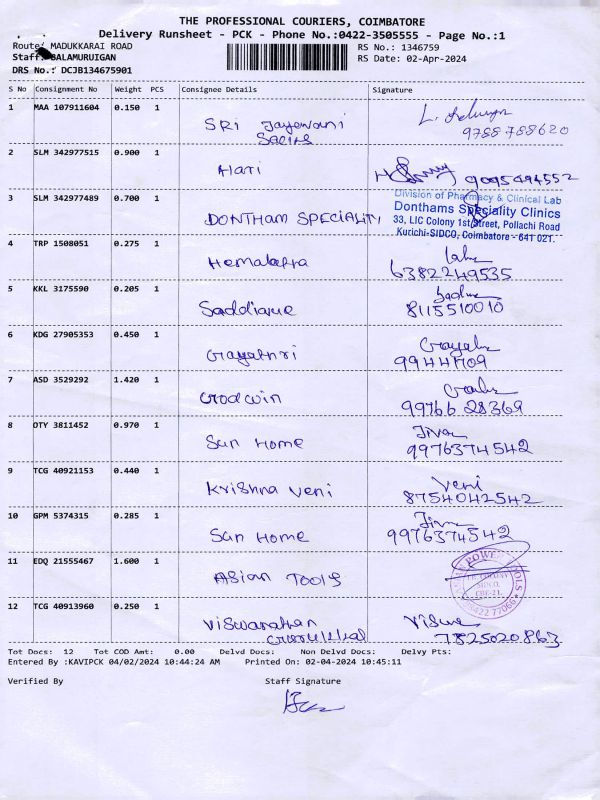 THE PROFESSIONAL COURIERS, COIMBATORE
Delivery Runsheet - PCK - Phone No.:0422-3505555 - Page No.:1
Route: MADUKKARAI ROAD
RS No.: 1346759
Staff: BALAMURUIGAN
RS Date: 02-Apr-2024
DRS No.: DCJB134675901
S No Consignment No Weight PCS Consignee Details Signature
1 MAA 107911604 0.150 1 SRI Jayewani
9788788620
2 SLM 342977515 0.900 1 Hari 9095494552
3 SLM 342977489 0.700 1 DONTHAM SPECIALITY
Division of Pharmacy & Clinical Lab
Donthams Speciality Clinics
33, LIC Colony 1st Street, Pollachi Road
Kurichi-SIDCO, Coimbatore - 641 021.
4 TRP 1508051 0.275 1 Hemalatha
6382249535
5 KKL 3175590 0.205 1
8115510010
6 KDG 27905353 0.450 1 Gayathri
99441709
7 ASD 3529292 1.420 1 Goodwin
9976628369
8 OTY 3811452 0.970 1 Sun Home Jiva
9976374542
9 TCG 40921153 0.440 1 Krishna veni Veni
8754042542
10 GPM 5374315 0.285 1 Sun Home
9976374542
11 EDQ 21555467 1.600 1 Asian Tools
12 TCG 40913960 0.250 1 Viswanathan Viswa
7325020863
Tot Docs: 12 Tot COD Amt: 0.00 Delvd Docs: Non Delvd Docs: Delvy Pts:
Entered By :KAVIPCK 04/02/2024 10:44:24 AM Printed On: 02-04-2024 10:45:11
Verified By Staff Signature